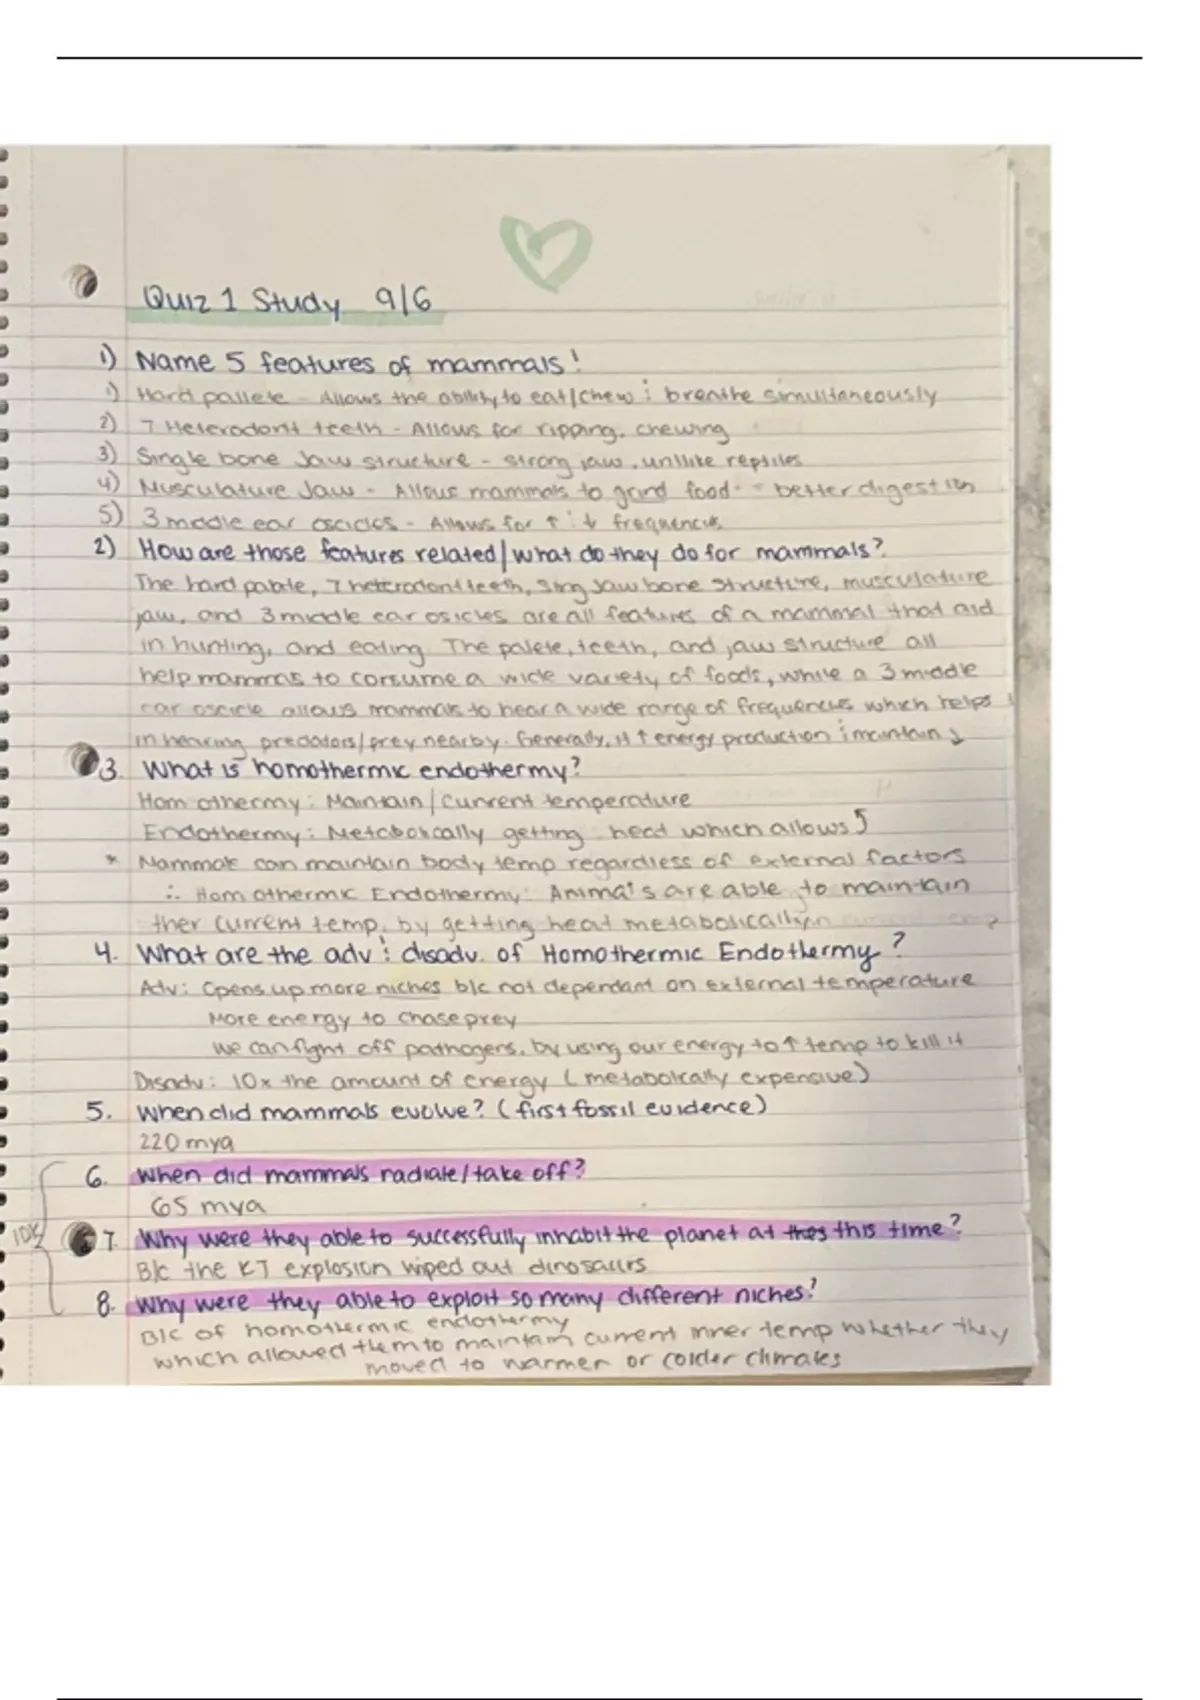 Quiz 1 Study 9/6
1) Name 5 features of mammals!
1) Hard pallete - Allows the ability to eat/chew & breathe simultaneously
2) 7 Heterodont teeth - Allows for ripping, chewing
3) Single bone Jaw structure - strong jaw, unlike reptiles
4) Musculature Jaw - Allows mammals to grind food - better digestion
5) 3 middle ear oscicles - Allows for ↑ & ↓ frequencies
2) How are those features related/what do they do for mammals?
The hard palate, 7 heterodont teeth, Sing Jaw bone structure, musculature
jaw, and 3 middle ear osicles are all features of a mammal that aid
in hunting, and eating. The palete, teeth, and jaw structure all
help mammals to consume a wide variety of foods, while a 3 middle
ear oscicle allows mammals to hear a wide range of frequencies which helps
in hearing predators/prey nearby. Generally, it ↑ energy production & maintain
3. What is homothermic endothermy?
Homothermy: Maintain/current temperature
Endothermy: Metabolically getting heat which allows
* Mammals can maintain body temp regardless of external factors
∴ Homothermic Endothermy: Animals are able to maintain
ther current temp. by getting heat metabolically
4. What are the adv & disadv. of Homothermic Endothermy?
Adv: Opens up more niches b/c not dependant on external temperature
More energy to chase prey
We can fight off pathogens, by using our energy to ↑ temp to kill it
Disadv: 10x the amount of energy (metabolically expensive)
5. When did mammals evolve? (first fossil evidence)
220 mya
6. When did mammals radiate/take off?
65 mya
IDK
7. Why were they able to successfully inhabit the planet at this time?
B/c the KT explosion wiped out dinosaurs
8. Why were they able to exploit so many different niches?
B/C of homothermic endothermy
which allowed them to maintain current inner temp whether they
moved to warmer or colder climates